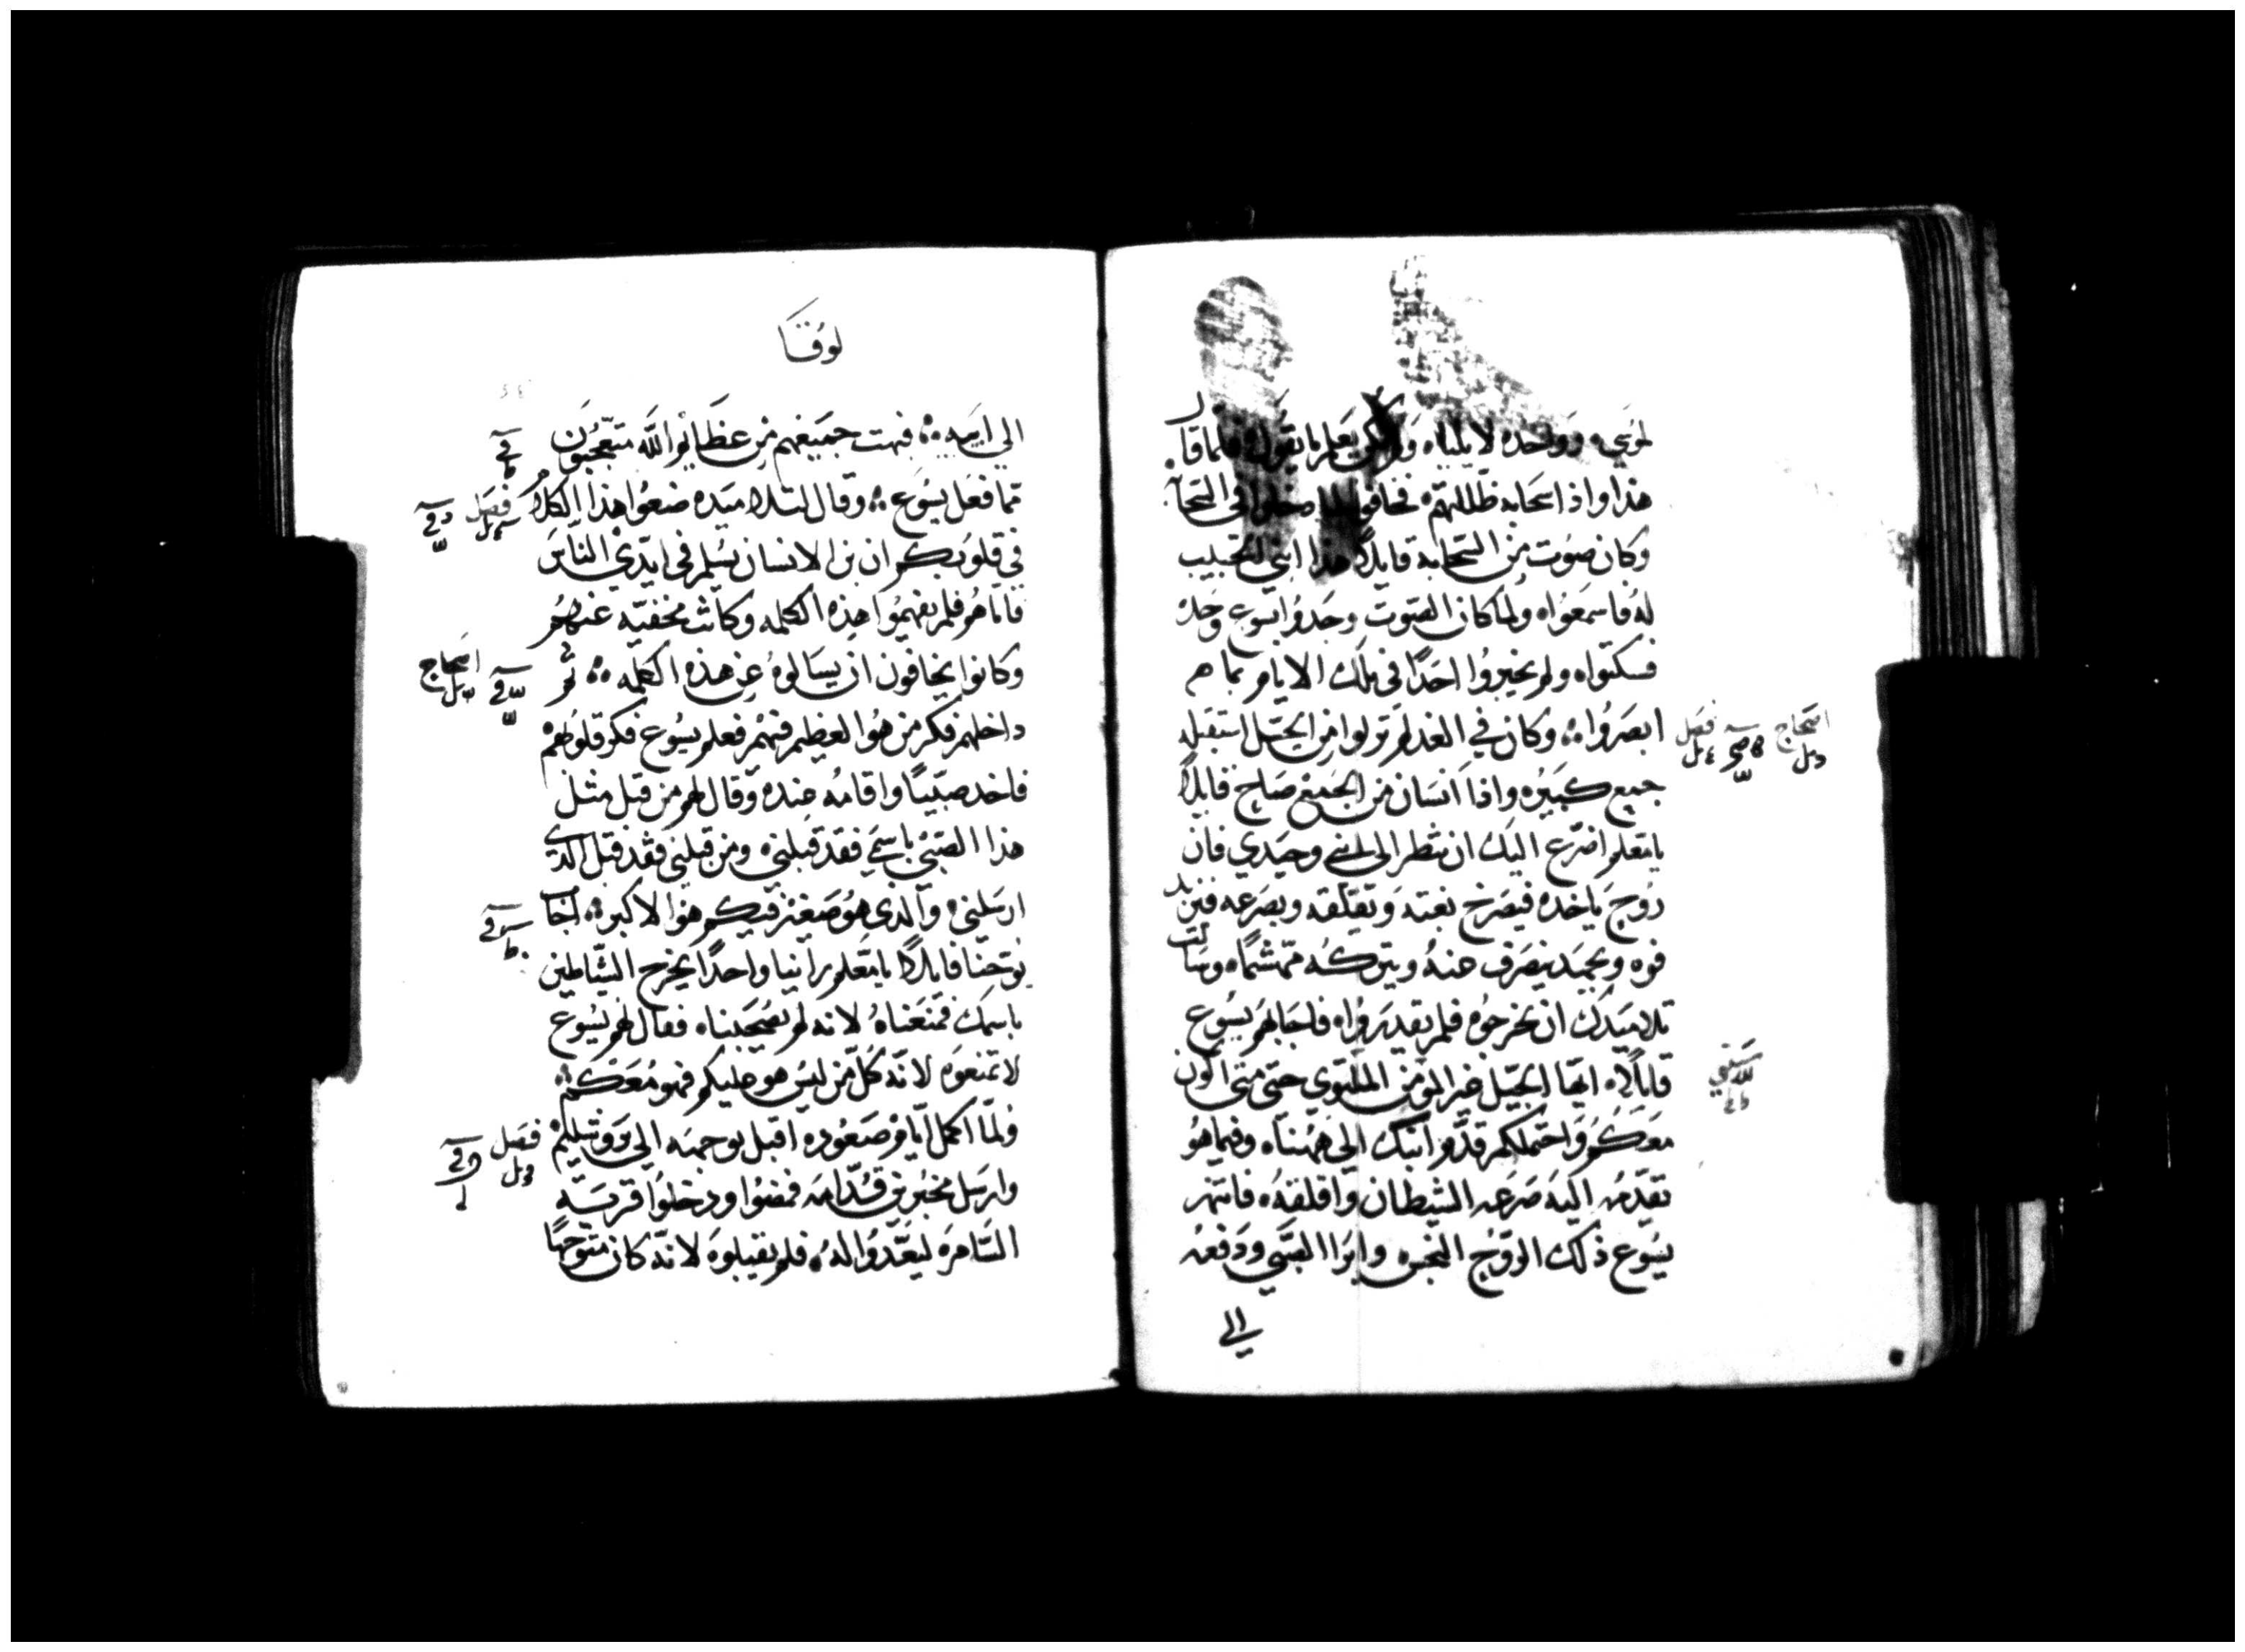 لموسي وواحده لايلياه ولم يكن يعلم ما يقوله فلما قال
هذا واذا سحابه ظللتهم فخافوا لما دخلوا في السحاب
وكان صوت من السحابة قايلاً هذا ابني الحبيب
له فاسمعواه ولما كان الصوت وجدوا يسوع وحده
فسكتواه ولم يخبروا احدًا في تلك الايام بما هم
ابصرواه وكان في الغد لم نزلوا من الجبل استقبله
اصحاح فصل
جميع كبيره واذا انسان من الجميع صاح قايلاً
يا معلم اضرع اليك ان تنظر الى ابني وحيدي فان
روح ياخذه فيصرخ بغته ويقلقه ويصرعه فيزبد
فوه وبجهد ينصرف عنه ويتركه مهشماه وسالت
تلاميدك ان يخرجوه فلم يقدرواه فاجابهم يسوع
قايلاه ايها الجيل غير المومن الملتوي حتى متى اكون
معكم واحتملكم قدّم ابنك الى ههناه وفيما هو
يقدّمه اليه صرعه الشيطان واقلقه فانتهر
يسوع ذلك الروح النجس وابرا الصبي ودفعه
الي
لوقا
الي ابيه فبهت جميعهم من عظايم الله متعجبون
مما فعل يسوع وقال لتلاميده ضعوا هذا الكلام
فصل
في قلوبكم ان بن الانسان يسلم في ايدي الناس
فاما هم فلم يفهموا هذه الكلمه وكانت مخفيه عنهم
وكانوا يخافون ان يسالوه عن هذه الكلمه ثم
اصحاح
داخلهم فكر من هو العظيم فيهم فعلم يسوع فكر قلوبهم
فاخد صبيًا واقامه عنده وقال لهم من قبل مثل
هذا الصبي باسمي فقد قبلني ومن قبلني فقد قبل الذي
ارسلني والذي هو صغير فيكم هو الاكبر اجاب
يوحنا قايلاً يا معلم راينا واحدًا يخرج الشياطين
باسمك فمنعناه لانه لم يصحبناه فقال لهم يسوع
لا تمنعوه لانه كل من ليس هو عليكم فهو معكم
ولما اكمل ايام صعوده اقبل بوجهه الي يروشليم
فصل
وارسل مخبرين قدامه فمضوا ودخلوا قرية
السامره ليعدوا له فلم يقبلوه لانه كان متوجهًا